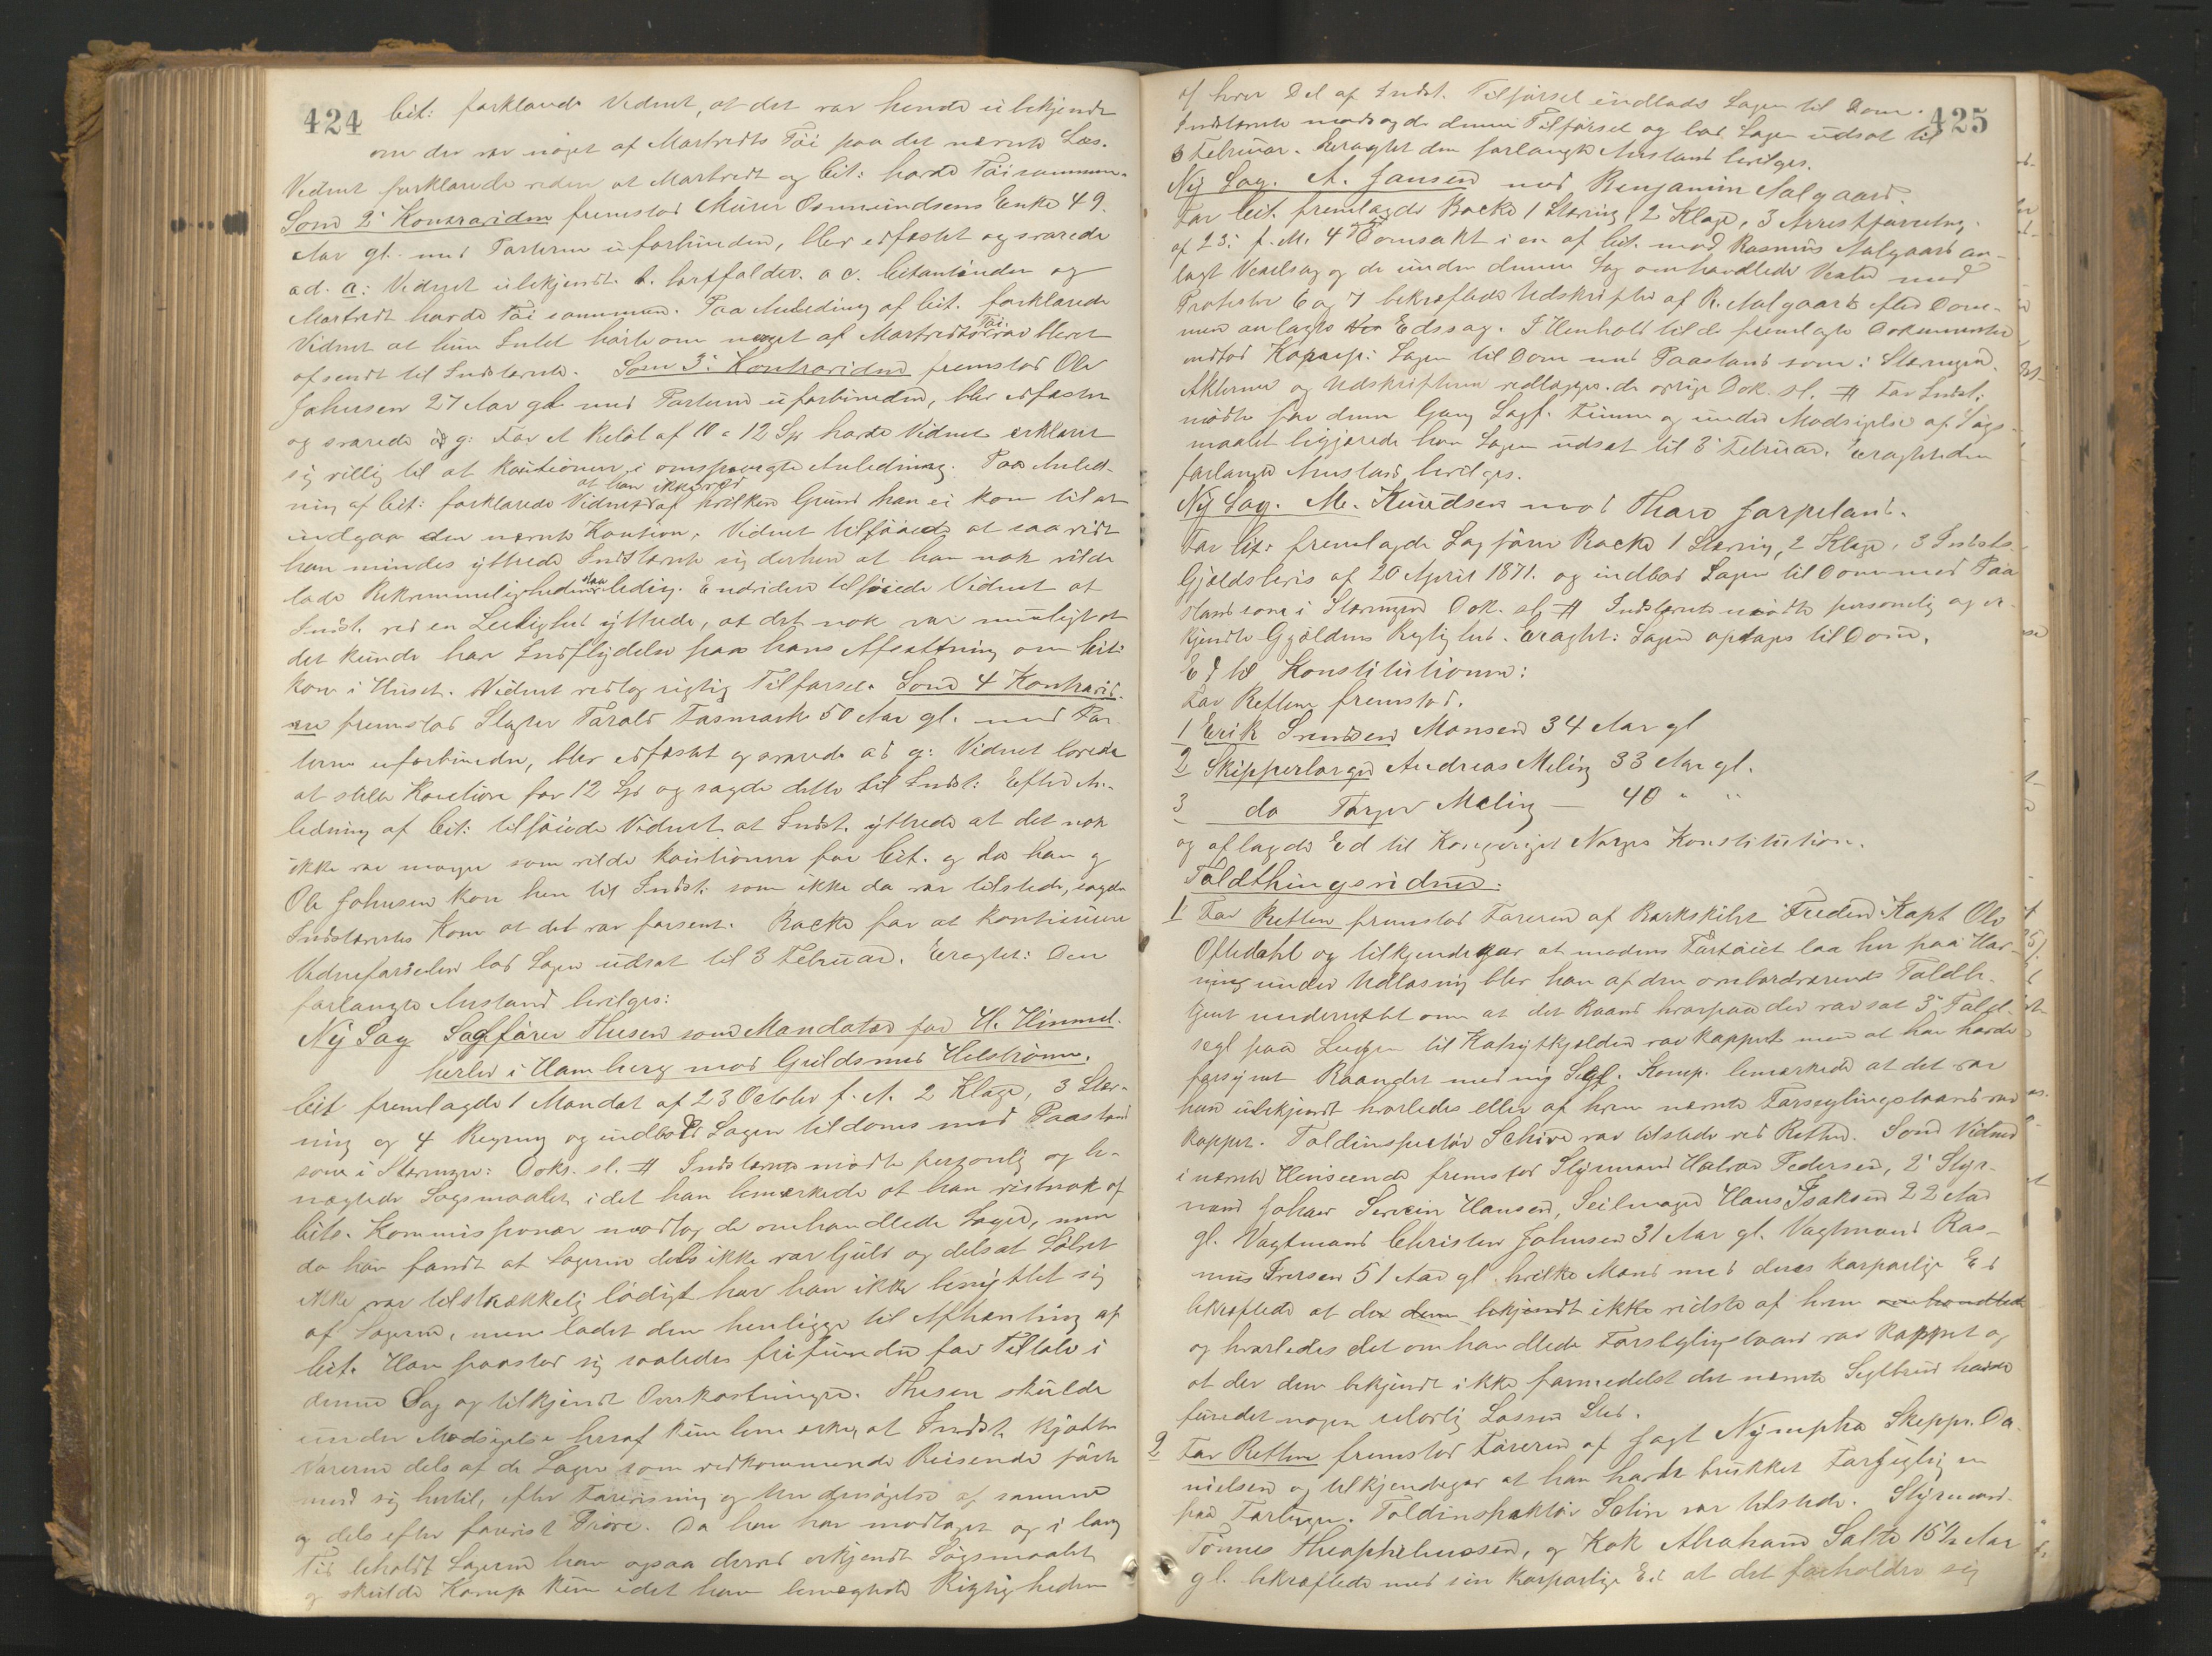 424
Cit: forklarede Vidnet, at det var hende ubekjendt
om der var noget af Martredts Töi paa det nævnte Læs.
Vidnet forklarede videre at Martredt og Cit: havde Töi sammen.
Som 2' Kontravidne fremstod Murer Osmundsens Enke 49
Aar gl. med Parterne uforbunden, blev edfæstet og svarede
ad. a: Vidnet ubekjendt. b. bortfalder. a c. Citantinden og
Martredt havde Töi sammen. Paa Anledning af Cit. forklarede
Vidnet at hun Intet hørte om noget af Martredts Töi var blevet
afsendt til Indstævnte. Som 3' Kontravidne fremstod Ole
Johnsen 27 Aar gl med Parterne uforbunden, blev edfæstet
og svarede ad g: For et Beløb af 10 a 12 Spd havde Vidnet erklæret
sig villig til at kautionere i omspurgte Anledning. Paa Anled-
at han ikke ved
ning af Cit: forklarede Vidnet af hvilken Grund han ei kom til at
indgaa den nævnte Kaution. Vidnet tilføiede at saavidt
han mindes yttrede Indstævnte sig derhen at han nok vilde
lade Bekvemmeligheden staa ledig. Endvidere tilføiede Vidnet at
Indst. ved en Leilighed yttrede, at det nok var muligt at
det kunde have Indflydelse paa hans Afsættning om Cit:
kom i Huset. Vidnet vedtog rigtig Tilførsel. Som 4 Kontravid-
ne fremstod Slagter Tarald Fasmark 50 Aar gl. med Par
terne uforbunden, blev edfæstet og svarede ad g: Vidnet lovede
at stille Kaution for 12 Spd og sagde dette til Indst: Efter An-
ledning af Cit: tilføiede Vidnet at Indst. yttrede at det nok
ikke var mange som vilde kautionere for Cit. og da han og
Ole Johnsen kom hen til Indst. som ikke da var tilstede, sagde
Indstævntes Kone at det var forsent. Backe for at kontinuere
Vidneførselen bad Sagen udsat til 3 Februar. Eragtet: Den
forlangte Anstand bevilges:
Ny Sag Sagfører Thesen som Mandatar for H. Himmel-
herber i Hamberg mod Guldsmed Helstrømm.
Cit fremlagde 1 Mandat af 23 October f. A. 2 Klage, 3 Stæv-
ning og 4 Regning og indbød Sagen tildoms med Paastand
som i Stævningen: Doks. sl. # Indstævnte mødte personlig og be-
nægtede Sagsmaalet idet han bemærkede at han vistnok af
Cits. Kommissionær modtog de omhandlede Sager, men
da han fandt at Sagerne dels ikke var Guld og dels at Sølvet
ikke var tilstrækkelig lødigt har han ikke benyttet sig
af Sagerne, men ladet dem henligge til Afhentning af
Cit. Han paastod sig saaledes frifunden for Tiltale i
denne Sag og tilkjendt Omkostninger. Thesen skulde
under Modsigelse heraf kun bemærke, at Indst. kjøbte
Varerne dels af de Sager som vedkommende Reisende førte
med sig hertil, efter Forevisning og Undersøgelse af samme
og dels efter forevist Prøve. Da han har modtaget og i lang
Tid beholdt Sagerne har ogsaa derved erkjendt Søgsmaalet
og skulde Komp kun idet han benægtede Rigtigheden
425
af hver Del af Indst. Tilførsel indlade Sagen til Dom.
Indstævnte modsagde denne Tilførsel og bad Sagen udsat til
3 Februar. Eragtet den forlangte Anstand bevilges.
Ny Sag. A. Jansen mod Benjamin Aalgaard.
For Cit. fremlagde Backe 1 Stævning, 2 Klage, 3 Arrestforretng.
af 23' f. M. 4 Domsakt i en af Cit. mod Rasmus Aalgaard an-
lagt Vexelsag og de under denne Sag omhandlede Vexler med
Protester 6 og 7 bekræftede Udskrifter af R. Aalgaard efter Dom-
men anlagte Edssag. I Henhold til de fremlagte Dokumenter
indlod Komp: Sagen til Dom med Paastand som i Stævningen.
Akterne og Udskrifterne vedlægges. de øvrige Dok. sl. # For Indst.
mødte for denne Gang Sagf. Finne og under Modsigelse af Søgs-
maalet begjærede han Sagen udsat til 3' Februar. Eragtet den
forlangte Anstand bevilges.
Ny Sag. M. Knudsen mod Thore Jarpeland.
For Cit: fremlagde Sagfører Backe 1 Stævning, 2 Klage, 3 Indsts
Gjældsbevis af 20 April 1871. og indbød Sagen til Dom med Paa
stand som i Stævningen Dok. sl. # Indstævnte mødte personlig og er-
kjendte Gjældens Rigtighed. Eragtet: Sagen optages til Dom.
Ed til Konstitutionen:
For Retten fremstod.
1 Erik Svendsen Monsen 34 Aar gl
2 Skipperborger Andreas Meling 33 Aar gl.
3 do Torger Meling — 40 " "
og aflagde Ed til Kongeriget Norges Konstitution.
Toldthingsvidner:
1 For Retten fremstod Føreren af Barkskibet Freden Kapt Ole
Oftedahl og tilkjendegav at medens Fartøiet laa her paa Hav-
ning under Udlosning blev han af den ombordværende Toldbe-
tjent underrettet om at det Baand hvorpaa der var sat 3' Told-
segl paa Lugen til Kahytkjelderen var kappet men at han havde
forsynet Baandet med ny Segl. Komp. bemærkede at det var
ham ubekjendt hvorledes eller af hvem nævnte Forseglingsbaand var
kappet. Toldinspectør Schive var tilstede ved Retten. Som Vidner
i nævnte Henseende fremstod Styrmand Halvor Pedersen, 2' Styr-
mand Johan Servein Hansen, Seilmager Hans Isaksen 22 Aar
gl. Vagtmand Christen Johnsen 31 Aar gl. Vagtmand Ras-
mus Iversen 51 Aar gl. hvilke Mænd med deres korporlige Ed
bekræftede at der dem bekjendt ikke vidste af hvem omhandlede
og hvorledes det omhandlede Forseglingsbaand var kappet og
at der dem bekjendt ikke formedelst det nævnte Seglbrud havde
fundet nogen ulovlig Losning Sted.
2 For Retten fremstod Føreren af Jagt Nympha Skipper Da-
nielsen og tilkjendegav at han havde brukket Forsegling en
paa Fartøiet. Toldinspektør Schive var tilstede. Styrmand
Tönnes Theophilussen, og Kok Abraham Salte 15½ Aar
gl. bekræftede med sin korporlige Ed at det forholder sig